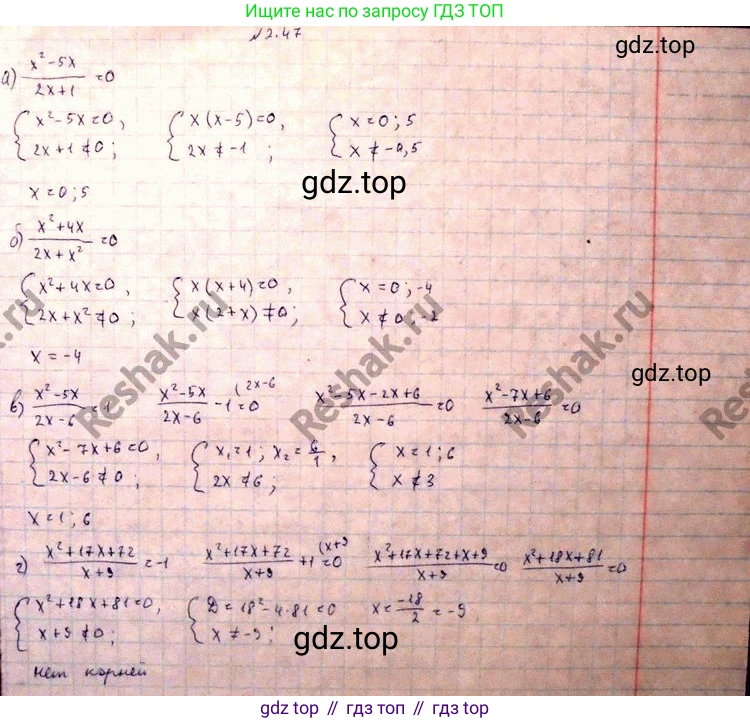 Ищите нас по запросу ГДЗ ТОП
№2.47
gdz.top
а) (x²-5x)/(2x+1) =0
{ x²-5x=0, 2x+1≠0; { x(x-5)=0, 2x≠-1; { x=0; 5 x≠-0,5
x=0; 5
gdz.top
б) (x²+4x)/(2x+x²) =0
{ x²+4x=0, 2x+x²≠0; { x(x+4)=0, x(2+x)≠0; { x=0; -4 x≠0; -2
x=-4
Reshak.ru
Reshak.ru
Reshak.ru
gdz.top
в) (x²-5x)/(2x-6) =1 (x²-5x)/(2x-6) -1 (2x-6 =0 (x²-5x-2x+6)/(2x-6) =0 (x²-7x+6)/(2x-6) =0
{ x²-7x+6=0, 2x-6≠0; { x₁=1; x₂=6/1, 2x≠6; { x=1; 6 x≠3
x=1; 6
г) (x²+17x+72)/(x+9) =-1 (x²+17x+72)/(x+9) +1 (x+9 =0 (x²+17x+72+x+9)/(x+9) =0 (x²+18x+81)/(x+9) =0
{ x²+18x+81=0, x+9≠0; { D=18²-4·81=0 x≠-9; x=-18/2=-9
gdz.top
нет корней
gdz top // гдз топ // gdz.top